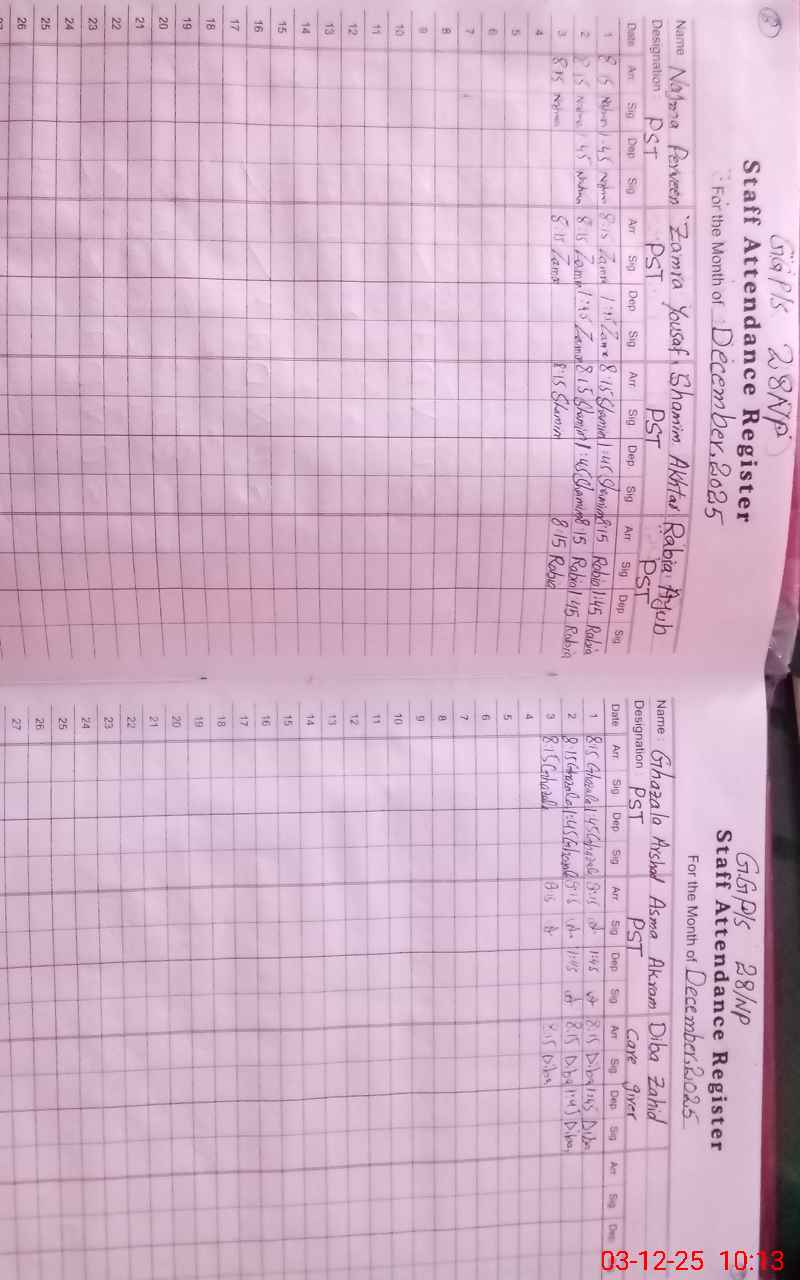 GGP/s 28NP
Staff Attendance Register
For the Month of December, 2025
Name Najma Perveen Zamra Yousaf Shamim Akhtar Rabia Ayub
Designation: PST PST PST PST
Date Arr Sig Dep Sig Arr Sig Dep Sig Arr Sig Dep Sig Arr Sig Dep Sig
1 8:15 1:45 8:15 1:45 8:15 Shamim 1:45 Shamim 8:15 Rabia 1:45 Rabia
2 8:15 1:45 8:15 1:45 8:15 Shamim 1:45 Shamim 8:15 Rabia 1:45 Rabia
3 8:15 8:15 8:15 Shamim 8:15 Rabia
4
5
6
7
8
9
10
11
12
13
14
15
16
17
18
19
20
21
22
23
24
25
26
GGP/s 28/NP
Staff Attendance Register
For the Month of December, 2025
Name: Ghazala Arshad Asma Akram Diba Zahid
Designation: PST PST Care giver
Date Arr Sig Dep Sig Arr Sig Dep Sig Arr Sig Dep Sig Arr Sig Dep
1 8:15 Ghazala 1:45 Ghazala 8:15 1:45 8:15 Diba 1:45 Diba
2 8:15 Ghazala 1:45 Ghazala 8:15 1:45 8:15 Diba 1:45 Diba
3 8:15 Ghazala 8:15 8:15 Diba
4
5
6
7
8
9
10
11
12
13
14
15
16
17
18
19
20
21
22
23
24
25
26
27
03-12-25 10:13